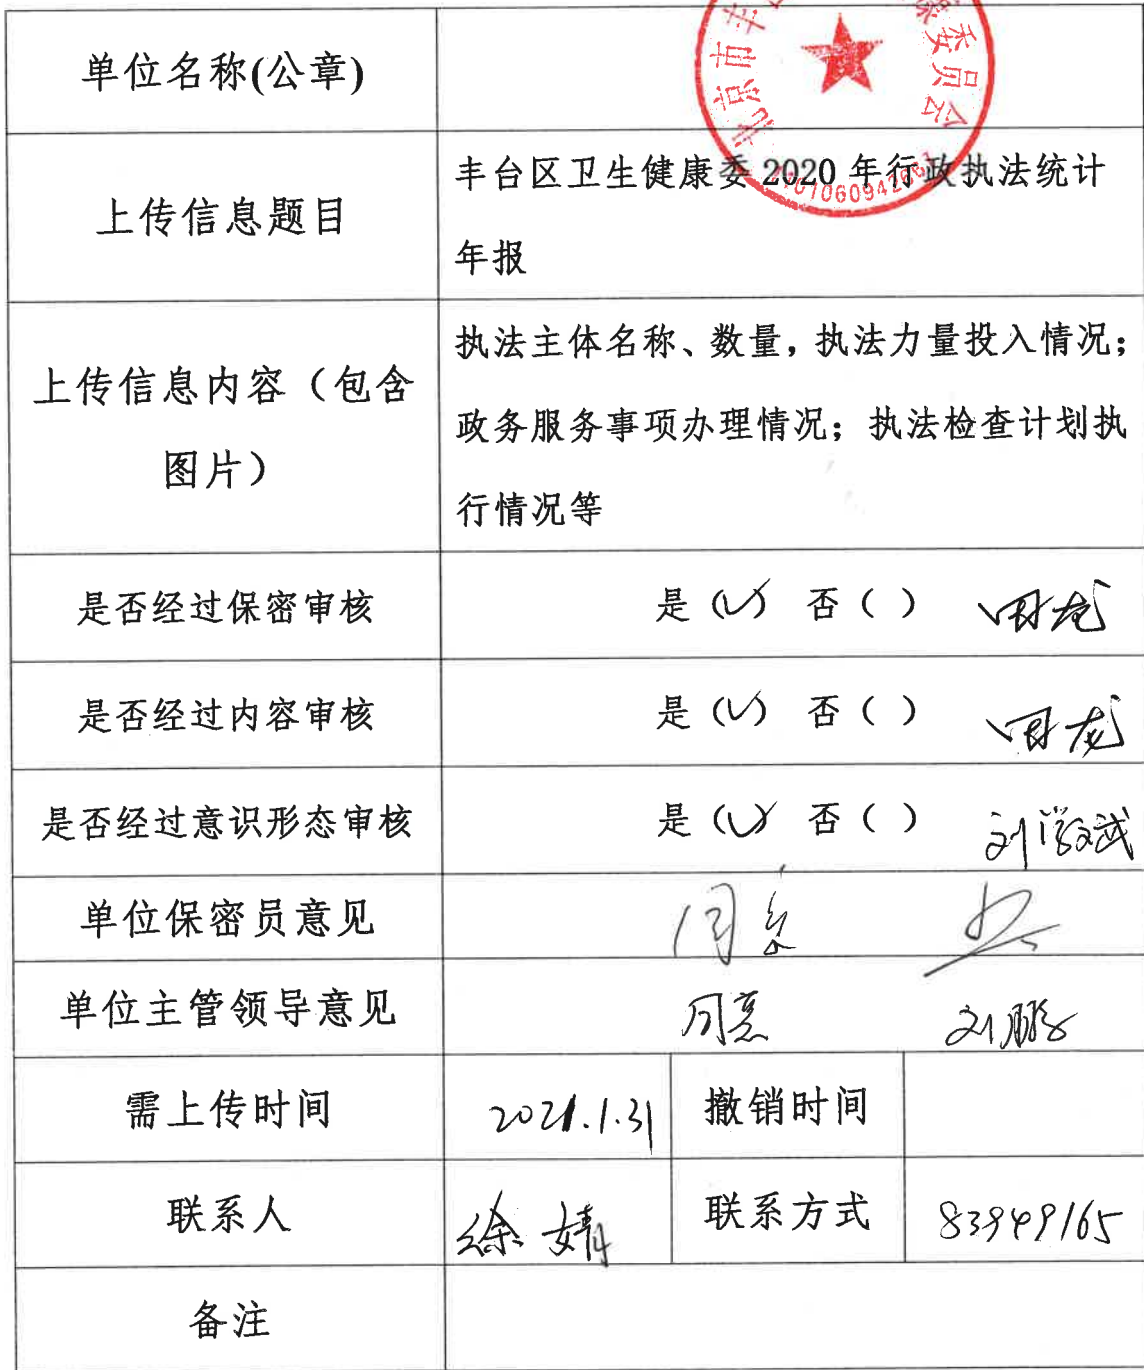 北京市丰 康委员会
单位名称(公章)
上传信息题目
丰台区卫生健康委 2020 年行政执法统计
年报
上传信息内容（包含
图片）
执法主体名称、数量，执法力量投入情况；
政务服务事项办理情况；执法检查计划执
行情况等
是否经过保密审核
是（✓） 否（ ）
是否经过内容审核
是（✓） 否（ ）
是否经过意识形态审核
是（✓） 否（ ）
单位保密员意见
同意
单位主管领导意见
同意 刘鹏
需上传时间
2021.1.31
撤销时间
联系人
徐婧
联系方式
83949165
备注